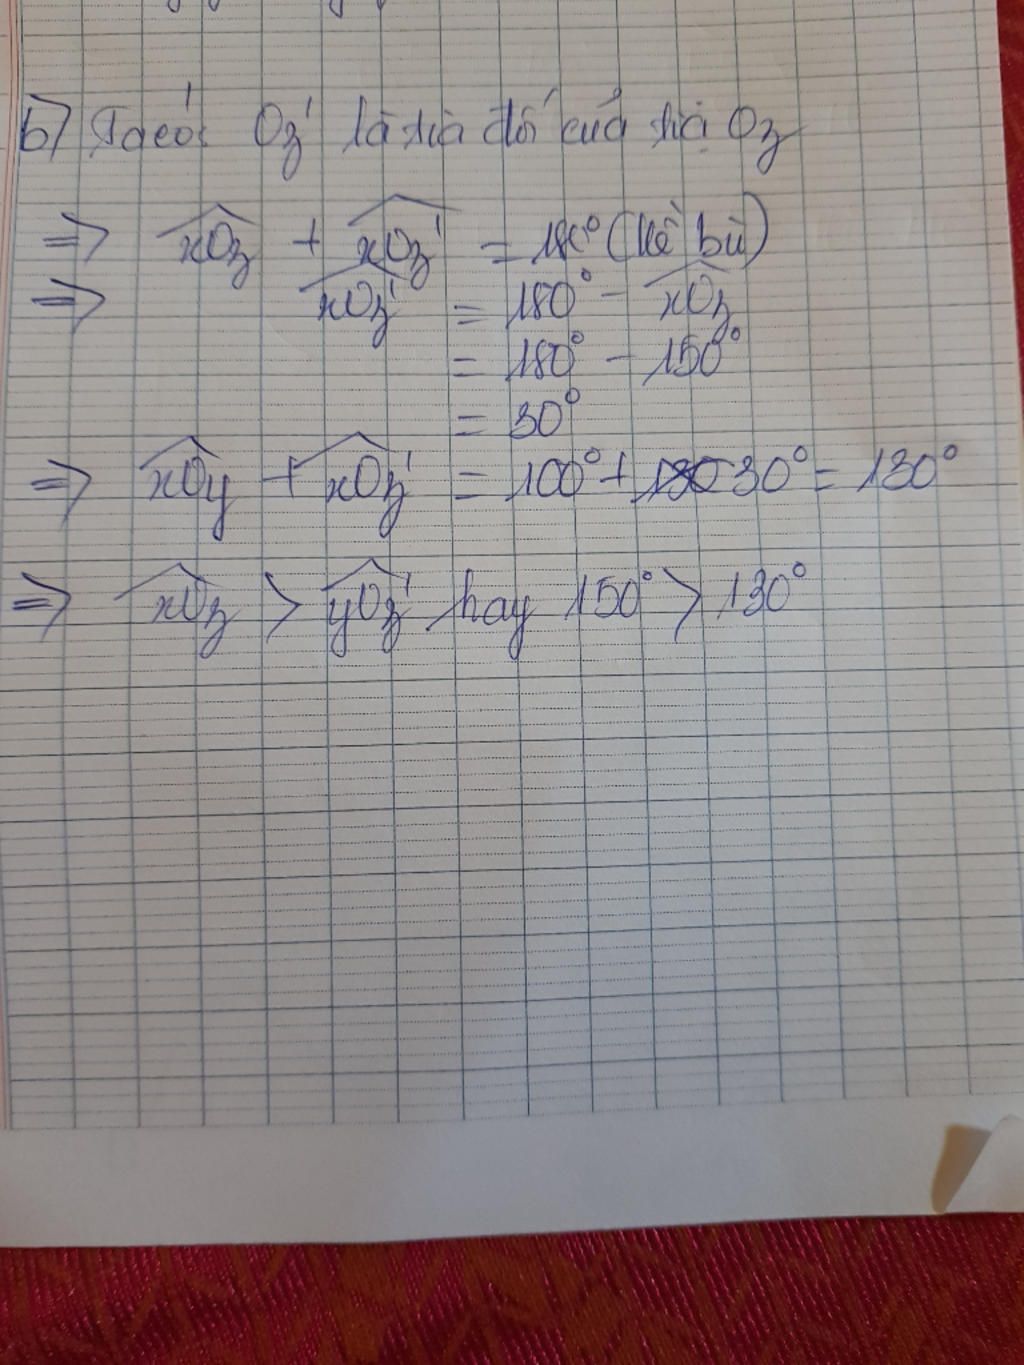 b) Ta có: Oz' là tia đối của tia Oz
=> xOz + xOz' = 180° (kề bù)
=> xOz' = 180° - xOz
= 180° - 150°
= 30°
=> xOy + xOz' = 100° + 30° = 130°
=> xOz > yOz' hay 150° > 130°